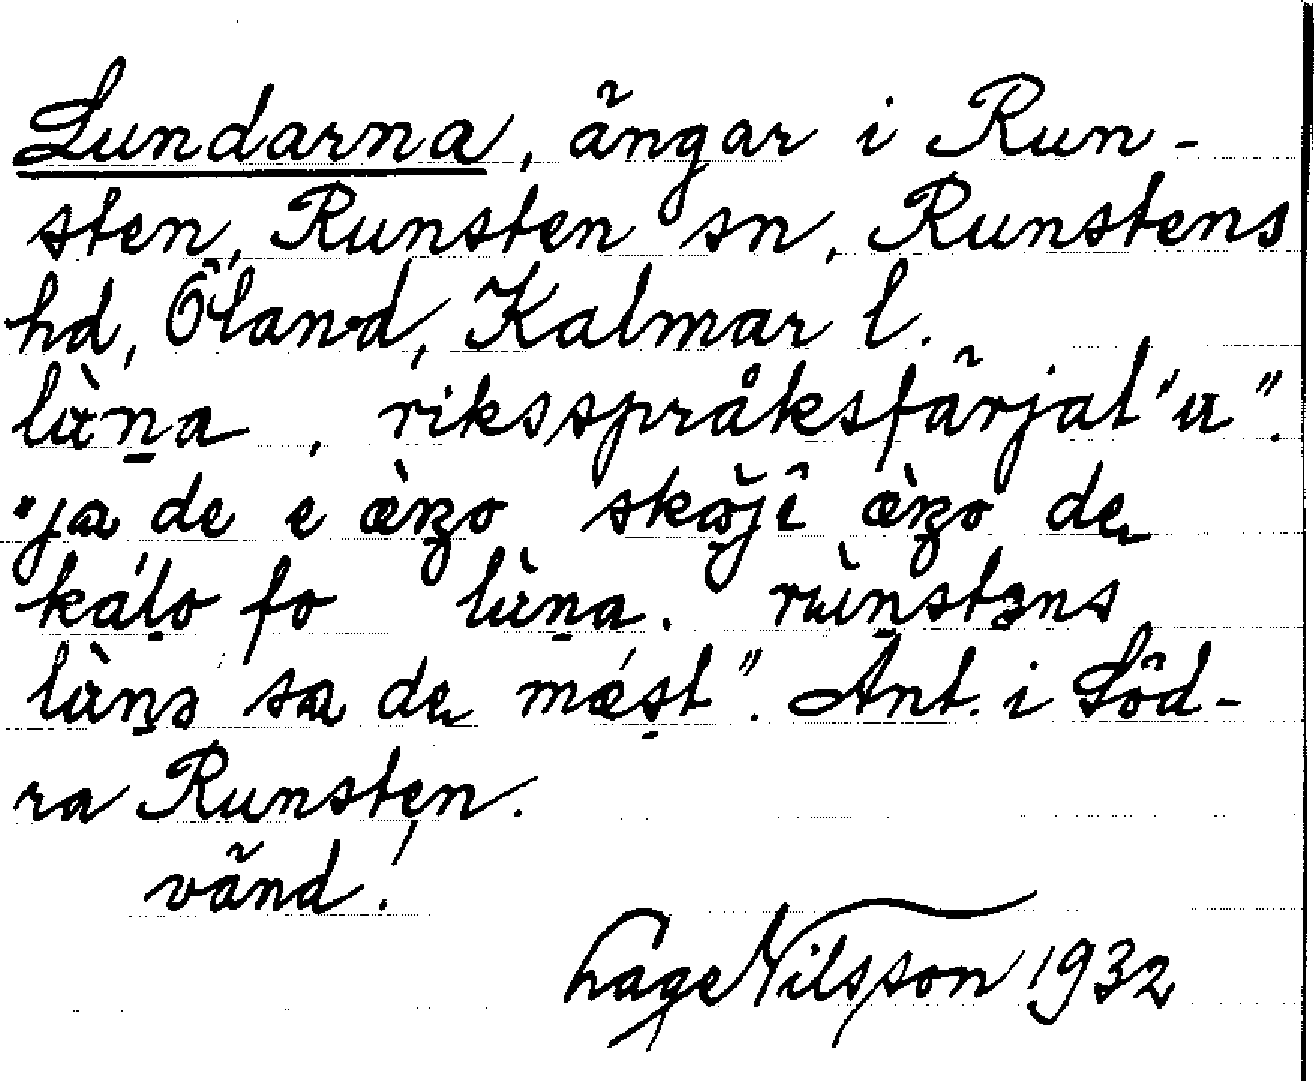 Lundarna, ängar i Run-
sten, Runsten sn, Runstens
hd, Öland, Kalmar l.
lùn̲a, riksspråksfärjat "u".
"ja de e æ̀ŋo skøji æ̀ŋo de
kálo fo lùn̲a. rùn̲stəns
lùnə sa de mǽst". Ant. i Söd-
ra Runsten.
vänd!
Lage Nilsson 1932